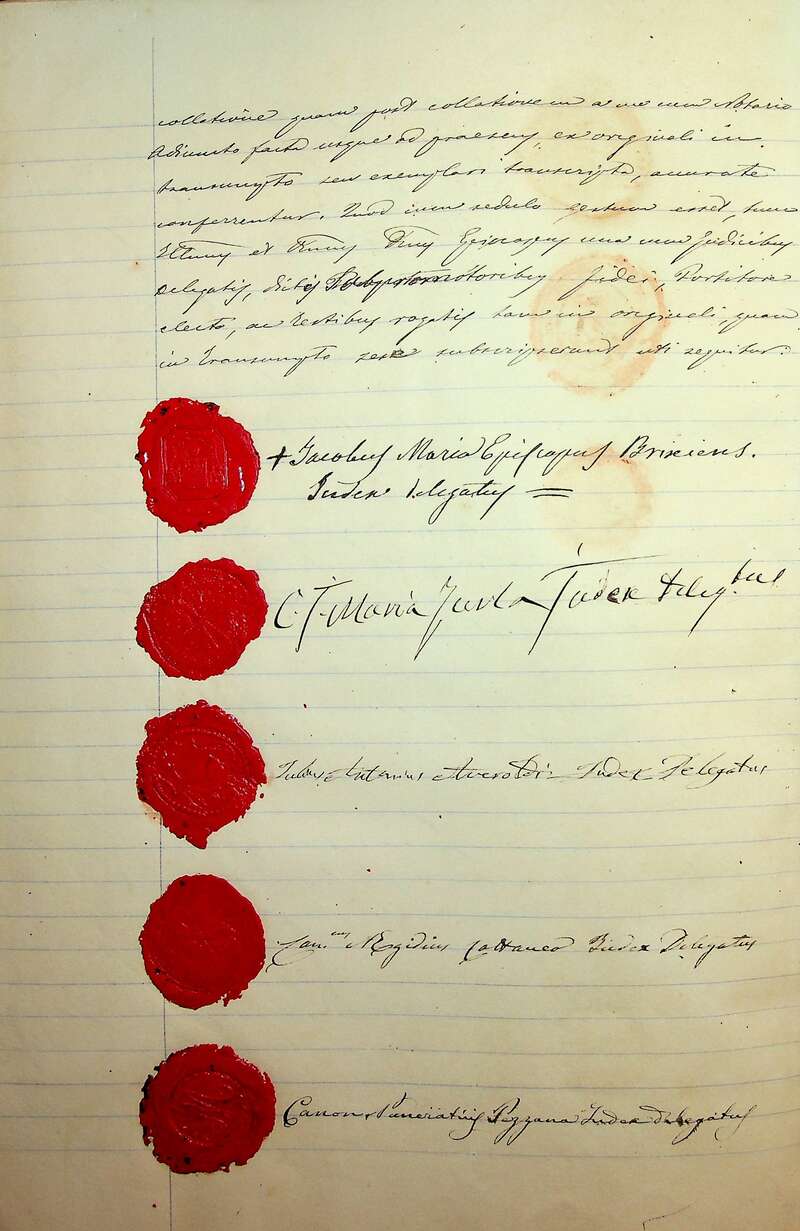 collatione quam post collationem a me uno Notario
Adiuncto facta usque ad praesens, ex originali in
transumpto seu exemplari transcripta, accurate
conferrentur. Quod cum sedulo gestum esset, tum
Illmus et Rmus Dnus Episcopus una cum Judicibus
Delegatis, dictis Subpromotoribus fidei, Portitore
electo, ac testibus rogatis tam in originali, quam
in transumpto sese subscripserunt uti sequitur:
+ Jacobus Maria Episcopus Brixiens.
Judex delegatus =
C. T. Maria Judex Deleg.tus
Julius Antonius Averoldi Judex Delegatus
Can.cus Aegidius Cattaneo Judex Delegatus
Canon. Pancratius Pezzana Judex delegatus